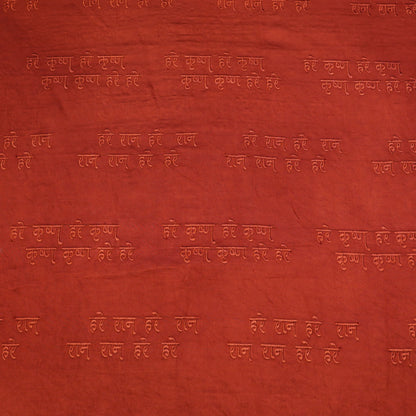 राम राम हरे हरे
हरे कृष्ण हरे कृष्ण
कृष्ण कृष्ण हरे हरे
हरे कृष्ण हरे कृष्ण
कृष्ण कृष्ण हरे हरे
हरे कृष्ण हरे कृष्ण
कृष्ण कृष्ण हरे हरे
हरे राम
हरे
हरे राम हरे राम
राम राम हरे हरे
हरे राम हरे राम
राम राम हरे हरे
हरे राम
राम राम हरे
हरे कृष्ण हरे कृष्ण
कृष्ण कृष्ण हरे हरे
हरे कृष्ण हरे कृष्ण
कृष्ण कृष्ण हरे हरे
हरे कृष्ण हरे कृष्ण
कृष्ण कृष्ण हरे हरे
राम
हरे
हरे राम हरे राम
राम राम हरे हरे
हरे राम हरे राम
राम राम हरे हरे